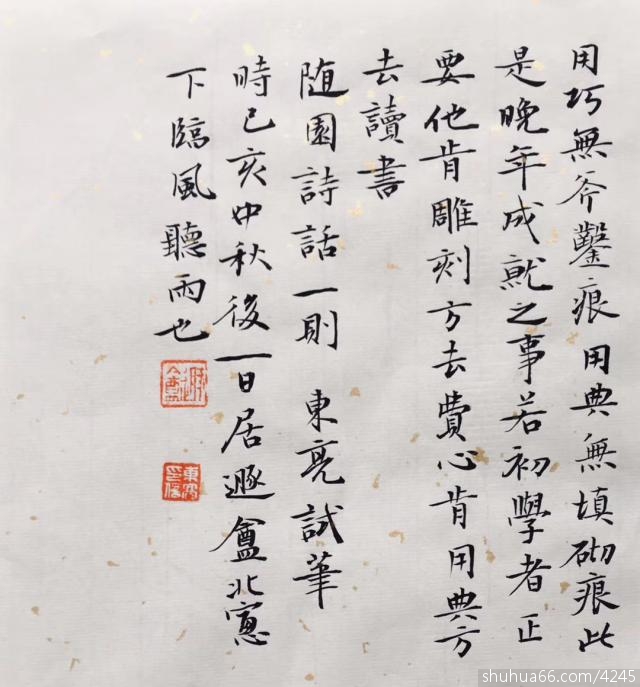 用巧無斧鑿痕用典無填砌痕此
是晚年成就之事若初學者正
要他肯雕刻方去費心肯用典方
去讀書
随園詩話一則 東亮試筆
時己亥中秋後一日居遯盦北窻
下臨風聽雨也
shuhua66.com/4245